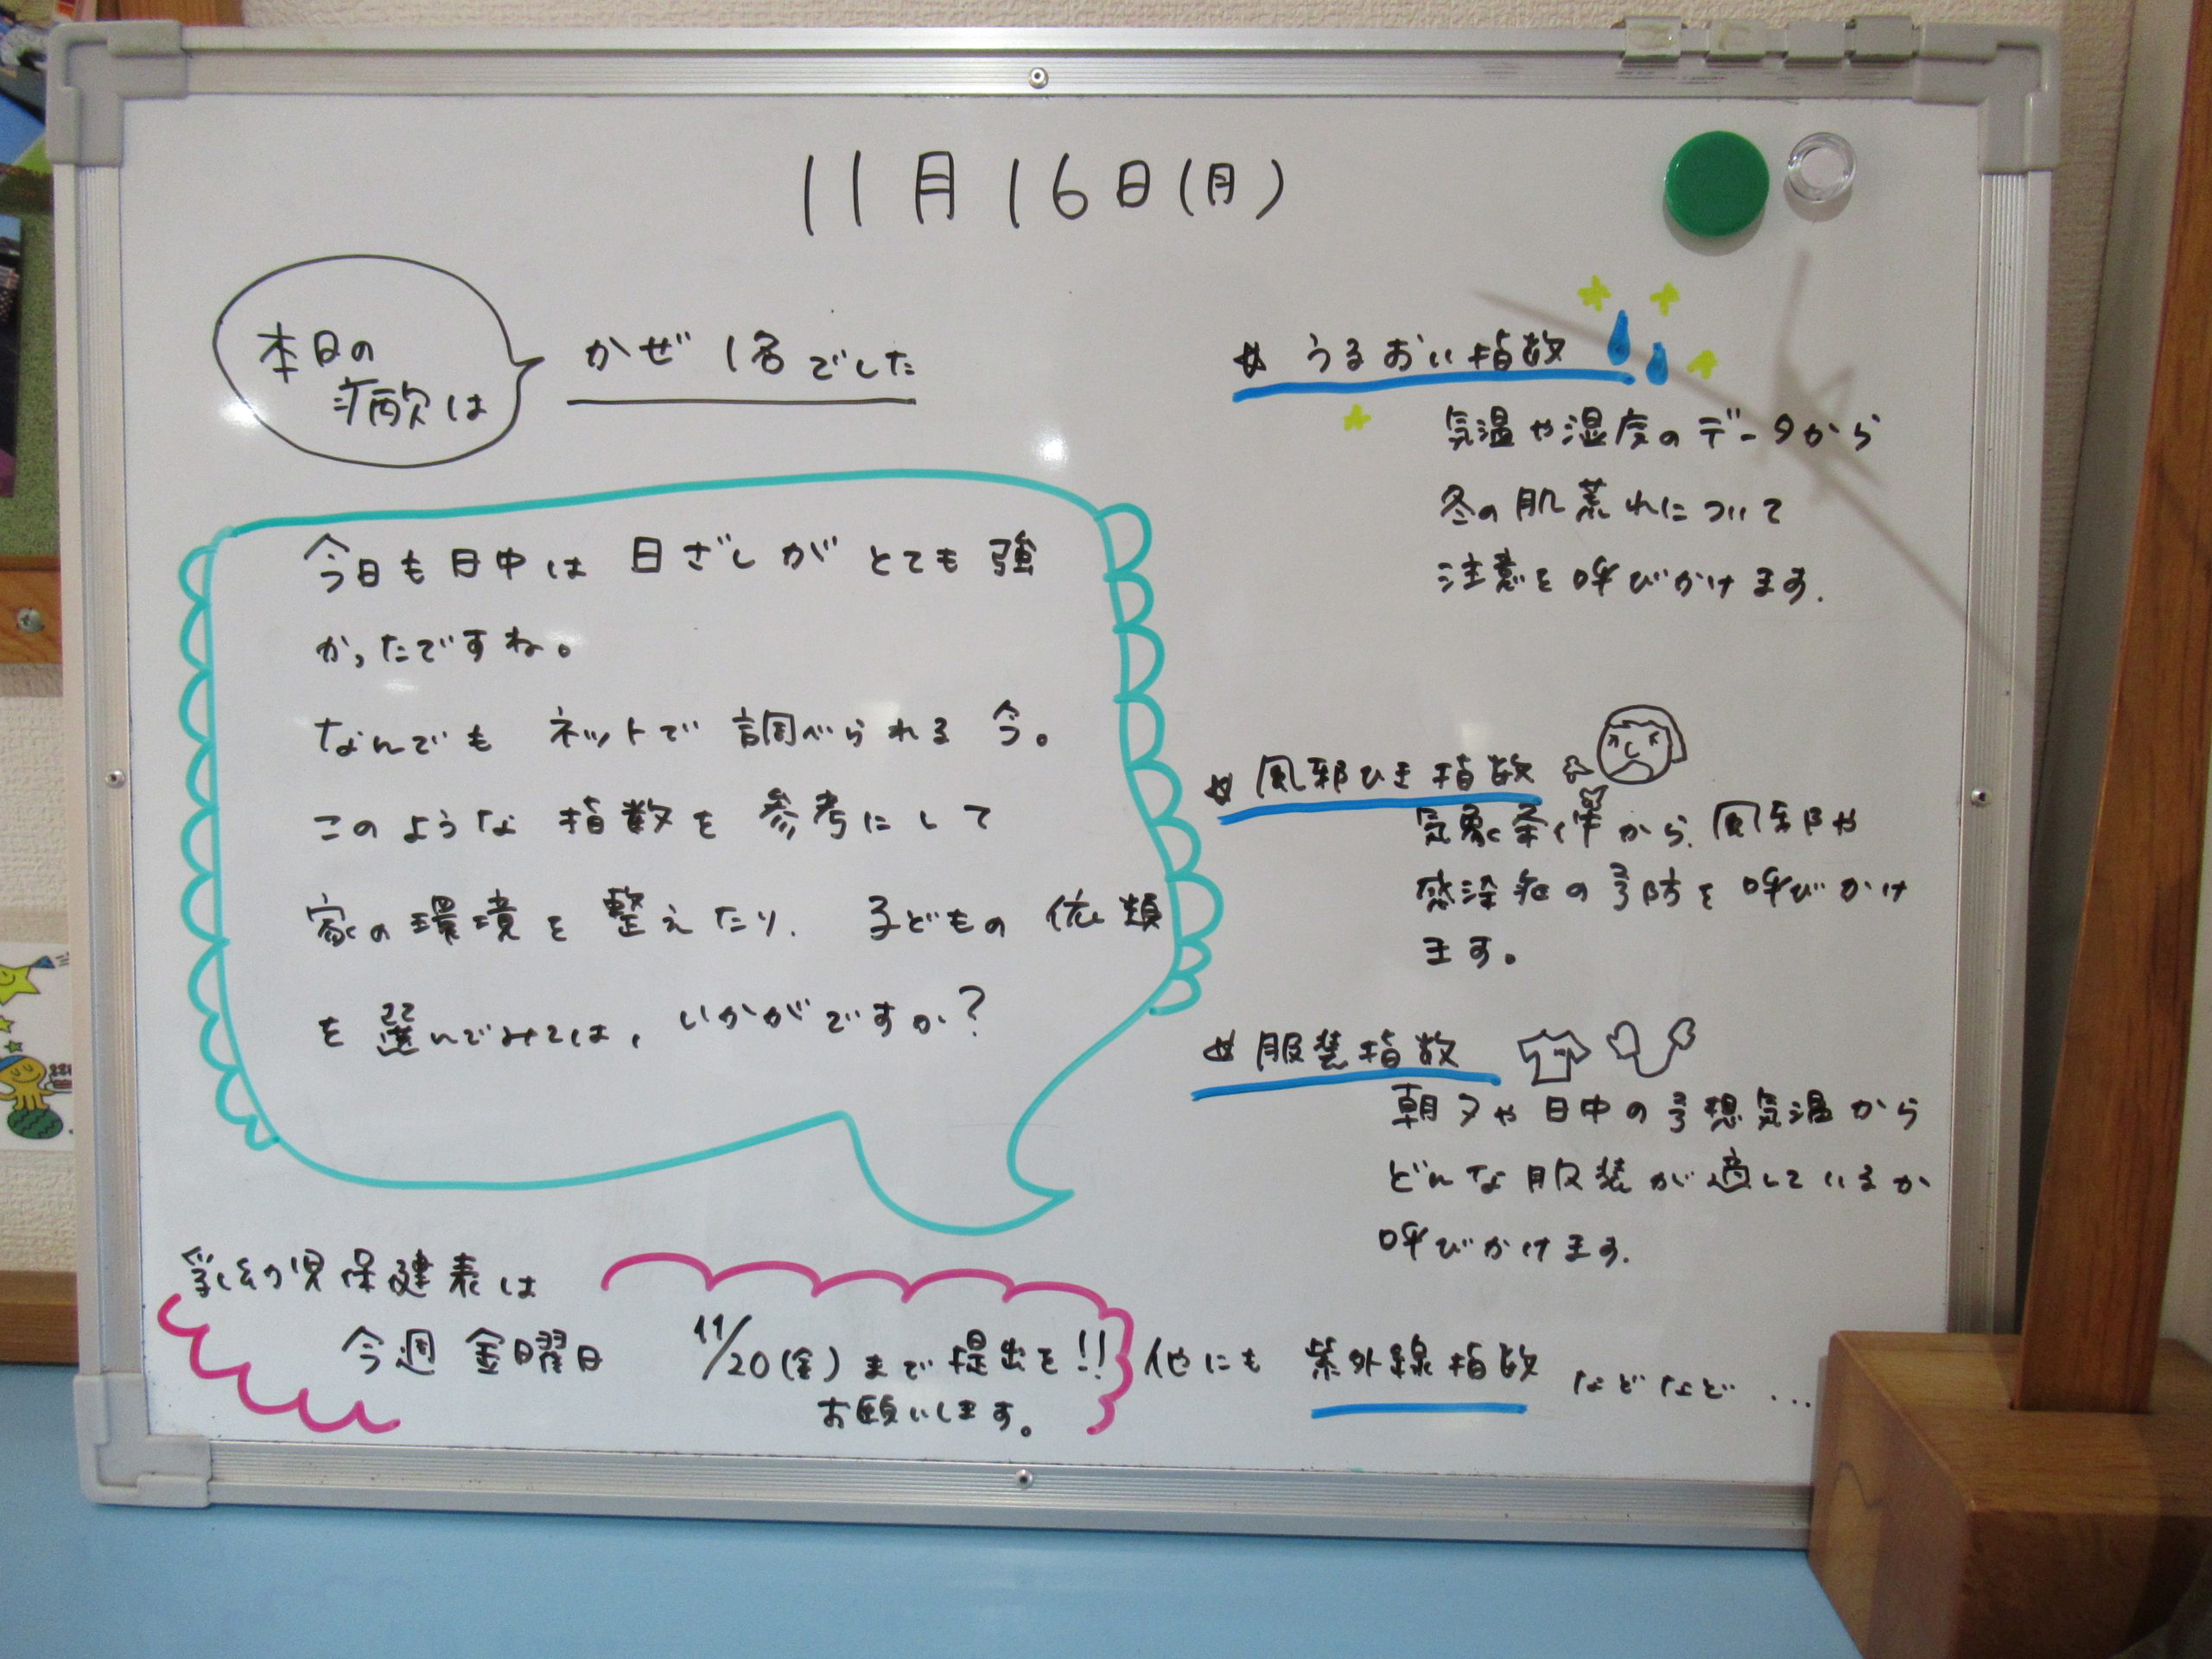 11月16日(月)
本日の
病欠は
かぜ 1名でした
今日も日中は 日ざしがとても強
かったですね。
なんでも ネットで調べられる今。
このような 指数を参考にして
家の環境を整えたり、子どもの依類
を選んでみては、いかがですか?
乳幼児保健表は
今週 金曜日 11/20(金)まで提出を!!
お願いします。
☆ うるおい指数
気温や湿度のデータから
冬の肌荒れについて
注意を呼びかけます.
☆ 風邪ひき指数
気象条件から、風邪や
感染症の予防を呼びかけ
ます。
☆ 服装指数
朝夕や日中の予想気温から
どんな服装が適しているか
呼びかけます.
他にも 紫外線指数 などなど...